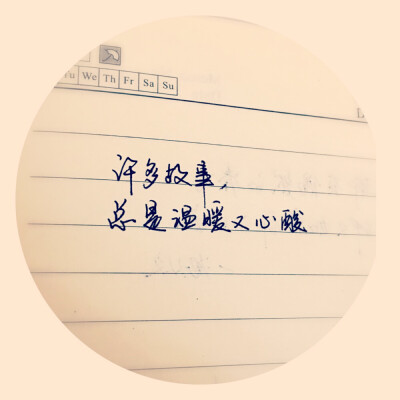 Tu We Th Fr Sa Su
许多故事，
总是温暖又心酸